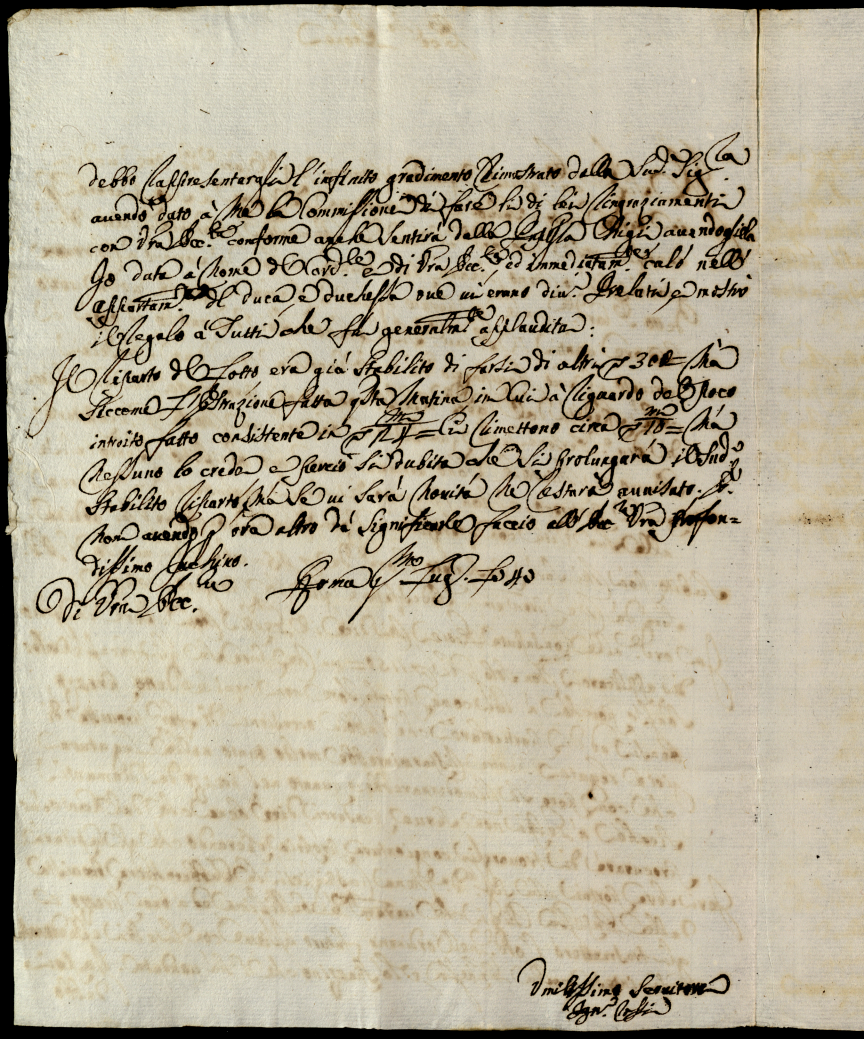 debbo rappresentargli l'infinito gradimento dimostrato dalla Sud.ª Sig.ra
avendo dato à Me la Commissione di fare li di lei ringraziamenti
con V̄ra Ecc.za conforme anche Sentirà dalla Chigi avendogliela
Io data à Nome di e di V̄ra Ecc.za ed immediatam.te calò nell'
appartam.to del Duca e Duchessa ove vi erano div.i Prelati e mostrò
il Regalo à Tutti che fu generalm.te applaudita:
Il riparto del Lotto era già Stabilito di farsi di altri 300 Mà
Siccome l'Estrazione fatta q̄sta Mattina in cui à riguardo del poco
introito fatto consistente in 124 = ci rimettono circa 10 = Mà
Nessuno lo crede e perciò Si dubita che Si prolungarà il Sud.o
Stabilito riparto, Mà Se vi Sarà Novità Ne restarà avvisato. E q.
Non avendo p ora altro da Significarle faccio all' Ecc.za V̄ra profon=
dissimo Inchino.
Di V̄ra Ecc.za Roma p.mo Lug.o 1740
Umilissimo Servitore
Ign.o